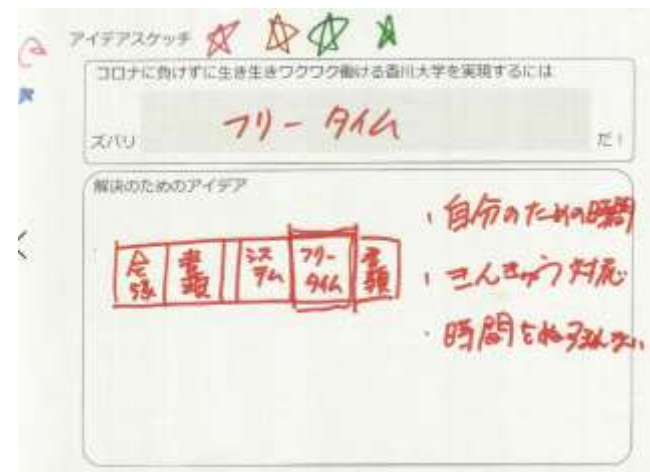 アイデアスケッチ
コロナに負けずに生き生きワクワク働ける香川大学を実現するには
ズバリ
フリータイム
だ！
解決のためのアイデア
会議
書類
システム
フリータイム
書類
・自分のための時間
・きんきゅう対応
・時間を